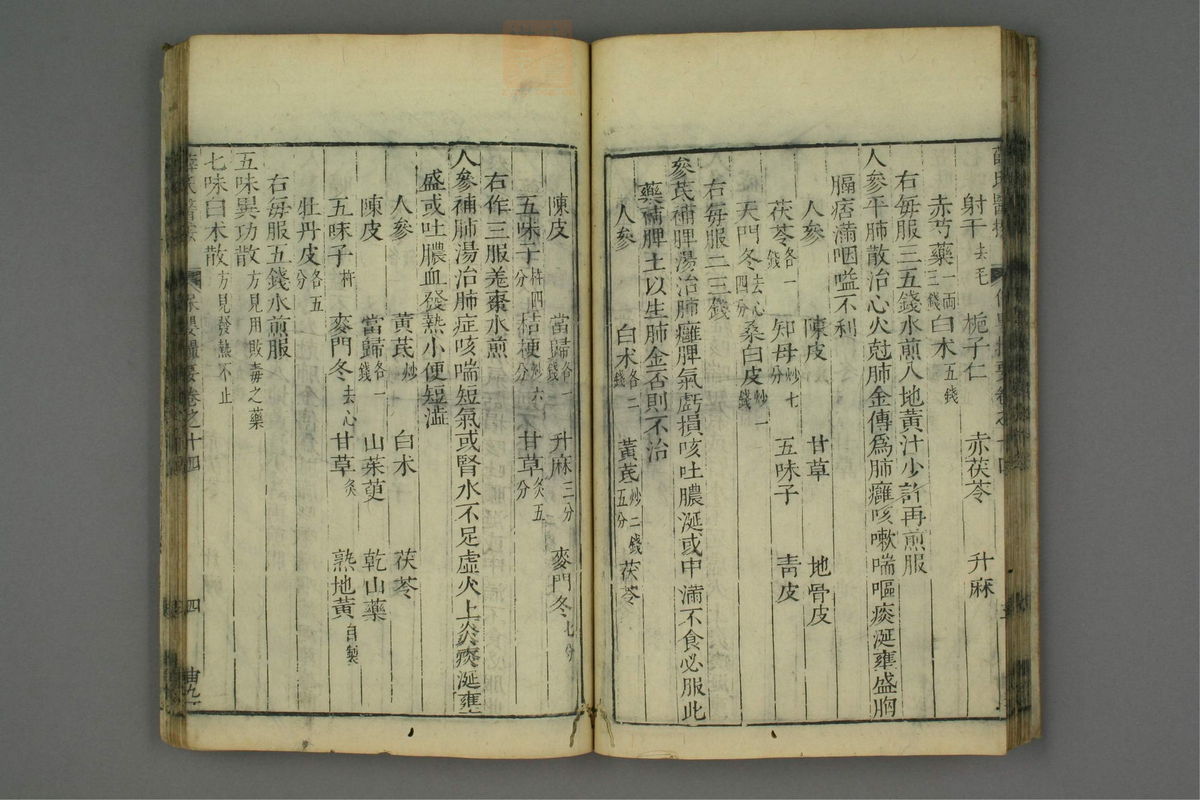 射干去毛 梔子仁 赤茯苓 升麻
赤芍藥一兩三錢 白朮五錢
右每服三五錢水煎入地黃汁少許再煎服
人參平肺散治心火尅肺金傳爲肺癰咳嗽喘嘔痰涎壅盛胸
膈痞滿咽嗌不利
人參 陳皮 甘草 地骨皮
茯苓各一錢 知母炒七分 五味子 青皮
天門冬去心四分 桑白皮炒一錢
右每服二三錢
參芪補脾湯治肺癰脾氣虧損咳吐膿涎或中滿不食必服此
藥補脾土以生肺金否則不治
人參 白朮各二錢 黃芪炒二錢五分 茯苓
陳皮 當歸各一錢 升麻三分 麥門冬七分
五味子杵四分 桔梗炒六分 甘草炙五分
右作三服羗棗水煎
人參補肺湯治肺症咳喘短氣或腎水不足虛火上炎痰涎壅
盛或吐膿血發熱小便短澁
人參 黃芪炒 白朮 茯苓
陳皮 當歸各一錢 山茱萸 乾山藥
五味子杵 麥門冬去心 甘草炙 熟地黃自製
牡丹皮各五分
右每服五錢水煎服
五味異功散方見用敗毒之藥
七味白朮散方見發熱不止
薛氏醫案 保嬰撮要卷之十四 四